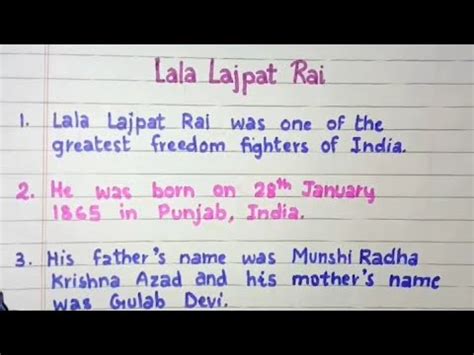 Lala Lajpat Rai
1. Lala Lajpat Rai was one of the
greatest freedom fighters of India.
2. He was born on 28th January
1865 in Punjab, India.
3. His father's name was Munshi Radha
Krishna Azad and his mother's name
was Gulab Devi.